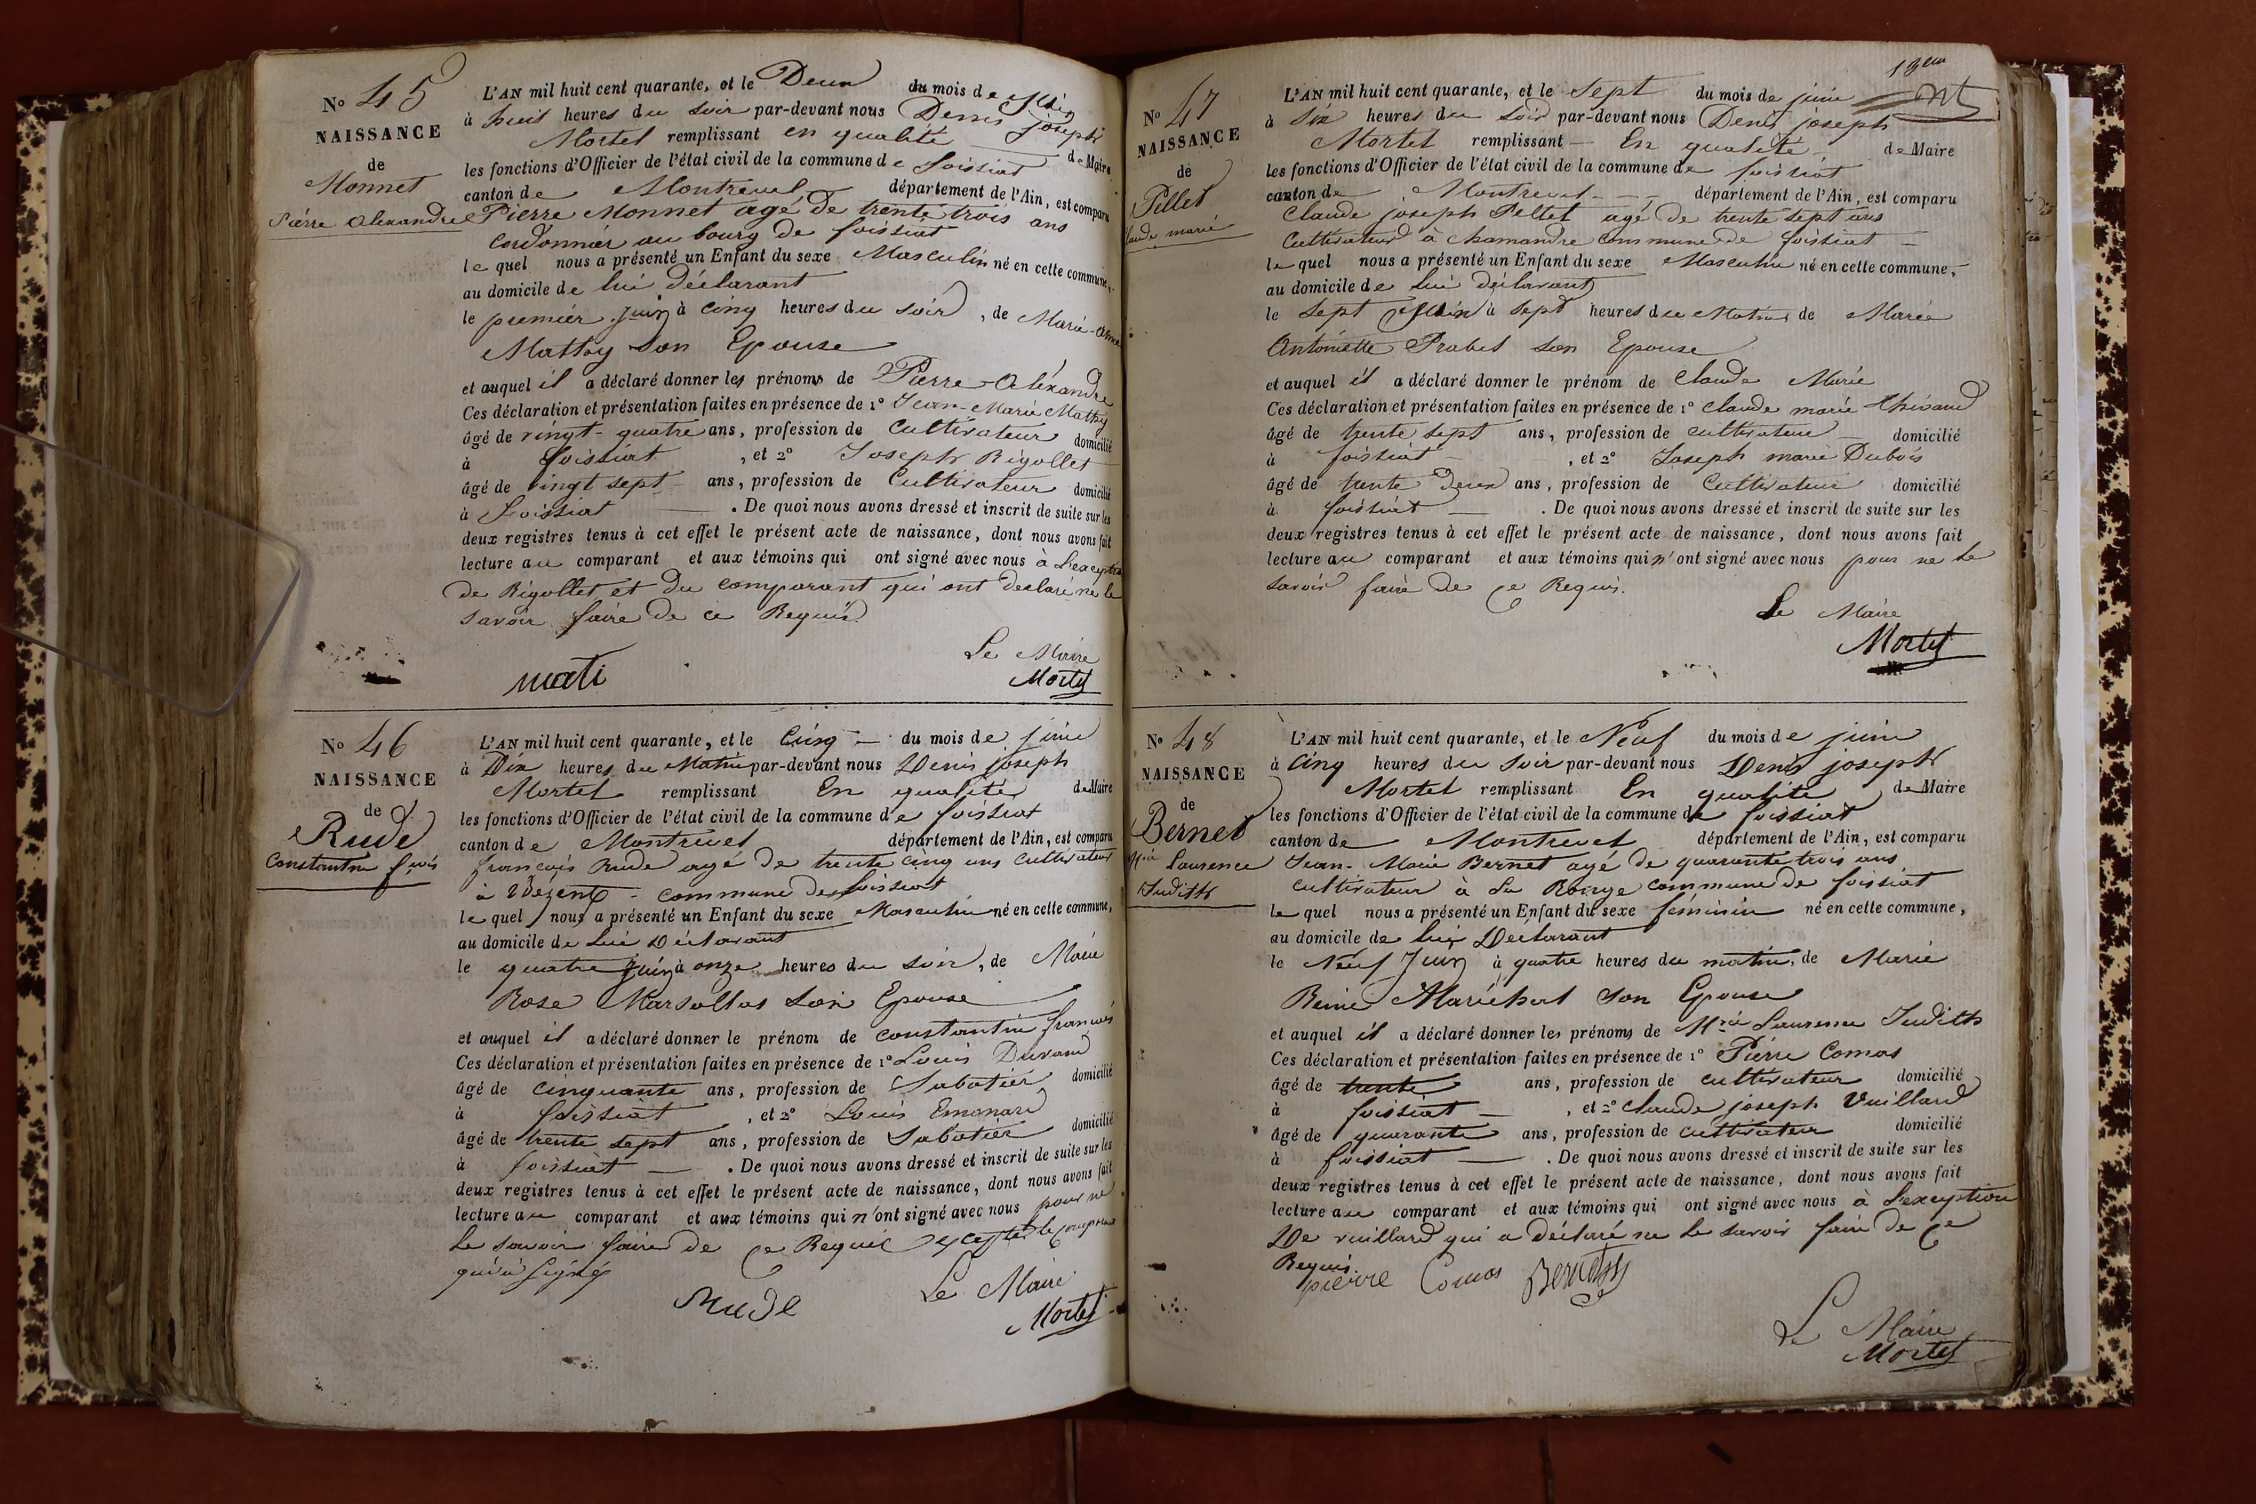 N° 45
NAISSANCE
de
Monnet
Pierre Alexandre
L'AN mil huit cent quarante, et le Deux du mois de Juin
à huit heures du soir par-devant nous Denis joseph
Mortel remplissant en qualité de Maire
les fonctions d'Officier de l'état civil de la commune de foissiat
canton de Montrevel département de l'Ain, est comparu
Pierre Monnet agé de trente trois ans
Cordonnier au bourg de foissiat
le quel nous a présenté un Enfant du sexe Masculin né en cette commune,
au domicile de lui déclarant
le premier juin à cinq heures du soir, de Marie-Anne
Mathy son Epouse
et auquel il a déclaré donner les prénoms de Pierre-Alexandre
Ces déclaration et présentation faites en présence de 1° Jean-Marie Mathy
âgé de vingt-quatre ans, profession de Cultivateur domicilié
à foissiat, et 2° Joseph Rigollet
âgé de vingt sept ans, profession de Cultivateur domicilié
à Foissiat. De quoi nous avons dressé et inscrit de suite sur les
deux registres tenus à cet effet le présent acte de naissance, dont nous avons fait
lecture au comparant et aux témoins qui ont signé avec nous à L'exception
de Rigollet et du comparant qui ont declaré ne le
savoir faire de ce Requis
Le Maire
mati Mortel
N° 46
NAISSANCE
de
Rude
Constantin fçois
L'AN mil huit cent quarante, et le Cinq du mois de juin
à Dix heures du Matin par-devant nous Denis joseph
Mortel remplissant En qualité de Maire
les fonctions d'Officier de l'état civil de la commune de foissiat
canton de Montrevel département de l'Ain, est comparu
françois Rude agé de trente cinq ans cultivateur
à - commune de foissiat
le quel nous a présenté un Enfant du sexe Masculin né en cette commune,
au domicile de lui Déclarant
le quatre Juin à onze heures du soir, de Marie
Rose Marsollas son Epouse
et auquel il a déclaré donner le prénom de constantin françois
Ces déclaration et présentation faites en présence de 1° Louis Durand
âgé de cinquante ans, profession de Sabotier domicilié
à foissiat, et 2° Louis Emonard
âgé de trente sept ans, profession de Sabotier domicilié
à foissiat. De quoi nous avons dressé et inscrit de suite sur les
deux registres tenus à cet effet le présent acte de naissance, dont nous avons fait
lecture au comparant et aux témoins qui n'ont signé avec nous pour ne
le savoir faire de ce Requis excepté le comparant
qui a signé
Le Maire
Rude Mortel
13eme
N° 47
NAISSANCE
de
Pellet
Claude marie
L'AN mil huit cent quarante, et le sept du mois de juin
à Six heures du soir par-devant nous Denis joseph
Mortel remplissant En qualité de Maire
les fonctions d'Officier de l'état civil de la commune de foissiat
canton de Montrevel département de l'Ain, est comparu
Claude joseph Pellet agé de trente sept ans
Cultivateur à chamandre commune de foissiat
le quel nous a présenté un Enfant du sexe Masculin né en cette commune,
au domicile de lui déclarant
le sept Juin à sept heures du Matin, de Marie
Antoinette Prabel son Epouse
et auquel il a déclaré donner le prénom de Claude Marie
Ces déclaration et présentation faites en présence de 1° Claude marie Thivaud
âgé de trente sept ans, profession de cultivateur domicilié
à foissiat, et 2° Joseph marie Dubois
âgé de trente Deux ans, profession de Cultivateur domicilié
à foissiat. De quoi nous avons dressé et inscrit de suite sur les
deux registres tenus à cet effet le présent acte de naissance, dont nous avons fait
lecture au comparant et aux témoins qui n'ont signé avec nous pour ne le
savoir faire de ce Requis.
Le Maire
Mortel
N° 48
NAISSANCE
de
Bernet
Mrie Laurence
Judith
L'AN mil huit cent quarante, et le Neuf du mois de juin
à Cinq heures du soir par-devant nous Denis joseph
Mortel remplissant En qualité de Maire
les fonctions d'Officier de l'état civil de la commune de foissiat
canton de Montrevel département de l'Ain, est comparu
Jean-Marie Bernet agé de quarante trois ans
cultivateur à La Rouge commune de foissiat
le quel nous a présenté un Enfant du sexe féminin né en cette commune,
au domicile de lui Déclarant
le Neuf Juin à quatre heures du matin, de Marie
Reine Maréchal son Epouse
et auquel il a déclaré donner les prénoms de Mrie Laurence Judith
Ces déclaration et présentation faites en présence de 1° Pierre Comas
âgé de trente ans, profession de cultivateur domicilié
à foissiat, et 2° Claude joseph Vuillard
âgé de quarante ans, profession de cultivateur domicilié
à foissiat. De quoi nous avons dressé et inscrit de suite sur les
deux registres tenus à cet effet le présent acte de naissance, dont nous avons fait
lecture au comparant et aux témoins qui ont signé avec nous à L'exception
De vuillard qui a déclaré ne le savoir faire de ce
Requis.
pierre Comas Bernet
Le Maire
Mortel